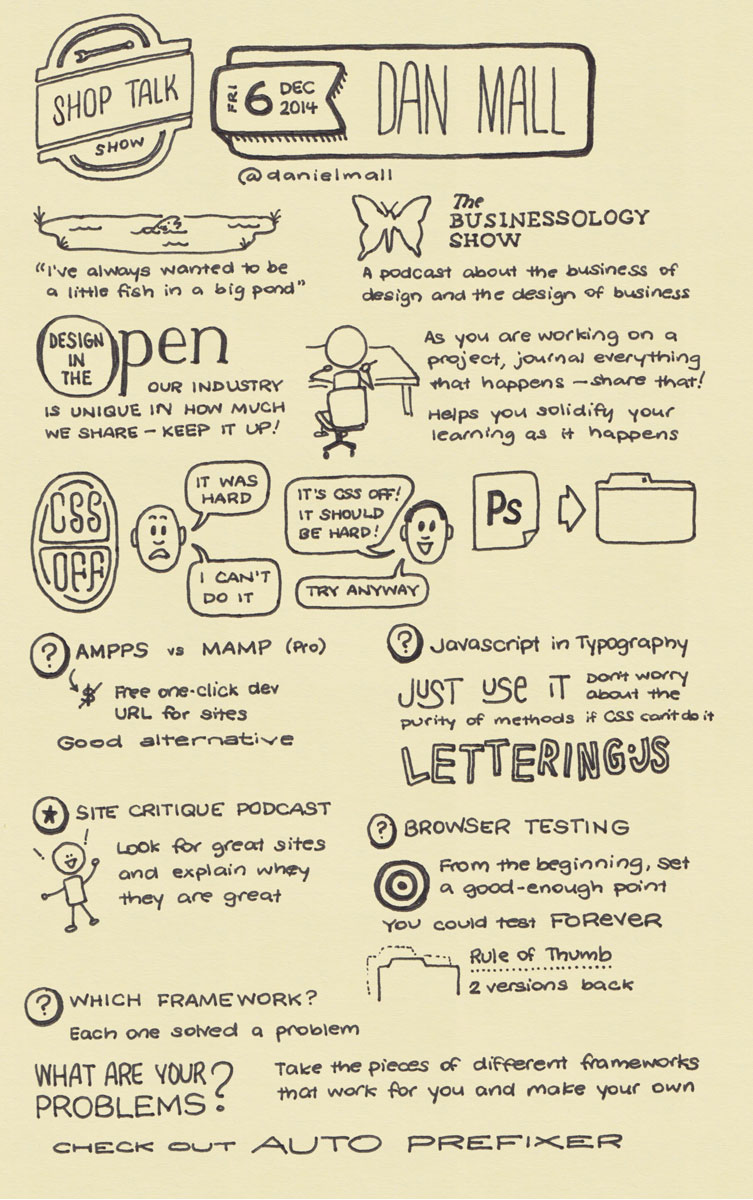 SHOP TALK
SHOW
FRI 6 DEC 2014
DAN MALL
@danielmall
"I've always wanted to be
a little fish in a big pond"
The
BUSINESSOLOGY
SHOW
A podcast about the business of
design and the design of business
DESIGN
IN
THE
Open
OUR INDUSTRY
IS UNIQUE IN HOW MUCH
WE SHARE – KEEP IT UP!
As you are working on a
project, journal everything
that happens – share that!
Helps you solidify your
learning as it happens
CSS
OFF
IT WAS
HARD
I CAN'T
DO IT
IT'S CSS OFF!
IT SHOULD
BE HARD!
TRY ANYWAY
Ps
? AMPPS vs MAMP (Pro)
$ Free one-click dev
URL for sites
Good alternative
? Javascript in Typography
JUST USE IT Don't worry
about the
purity of methods if CSS can't do it
LETTERING.JS
SITE CRITIQUE PODCAST
Look for great sites
and explain whey
they are great
? BROWSER TESTING
From the beginning, set
a good-enough point
You could test FOREVER
Rule of Thumb
2 versions back
? WHICH FRAMEWORK?
Each one solved a problem
WHAT ARE YOUR
PROBLEMS?
Take the pieces of different frameworks
that work for you and make your own
CHECK OUT AUTO PREFIXER